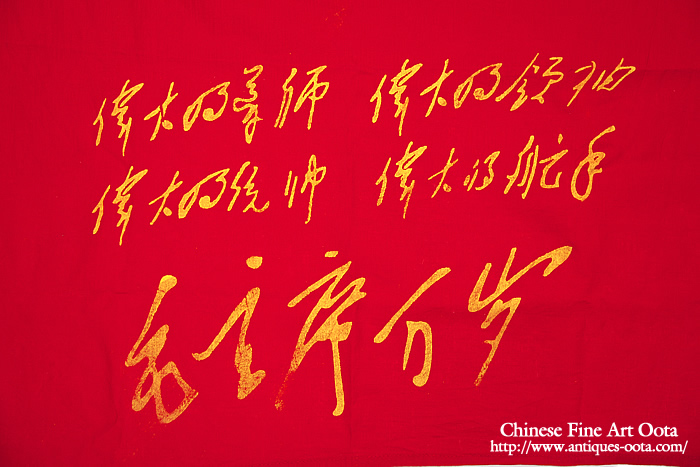 偉大的导师 偉大的领袖
偉大的统帅 偉大的航手
毛主席万岁
Chinese Fine Art Oota
http://www.antiques-oota.com/